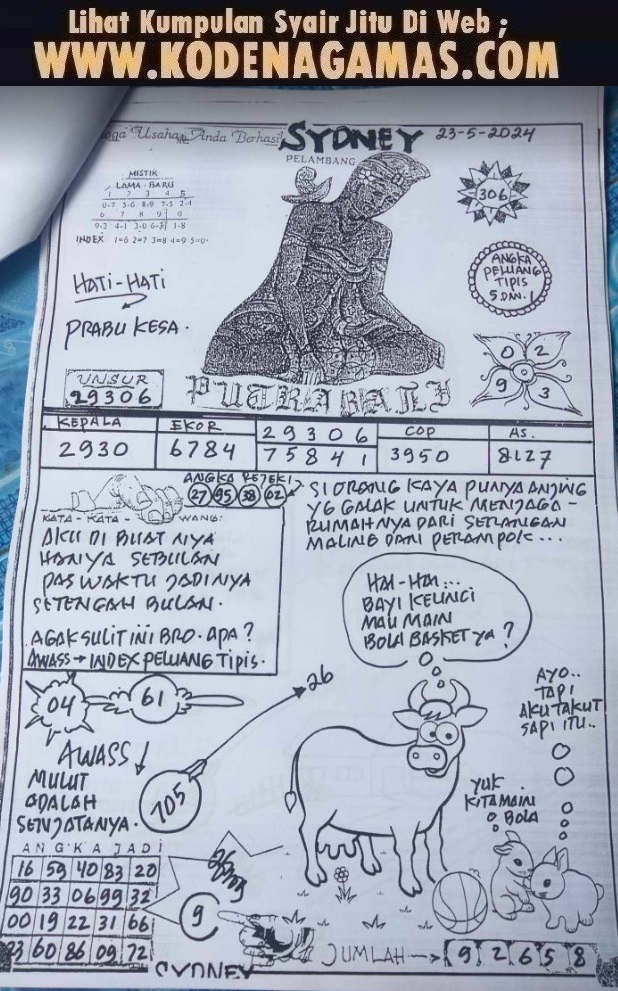 Lihat Kumpulan Syair Jitu Di Web ;
WWW.KODENAGAMAS.COM
Usaha Anda Berhasil SYDNEY 23-5-2024
PELAMBANG
MISTIK
LAMA - BARU
1 2 3 4 5
0-7 5-6 8-9 7-5 2-4
6 7 8 9 0
9-2 4-1 3-0 6-3 1-8
INDEX 1=6 2=7 3=8 4=9 5=0
306
HATI-HATI
PRABU KESA.
ANGKA
PELUANG
TIPIS
5 DAN 1
0 2
9 3
UNSUR
29306
PUTRA BALI
KEPALA EKOR 29306 COP AS.
2930 6784 75841 3950 8127
ANGKA REJEKI
27 95 38 62
KATA - KATA WANG:
AKU DI BUAT NYA
HANYA SEBULAN
PAS WAKTU JADINYA
SETENGAH BULAN.
AGAK SULIT INI BRO. APA?
AWASS → INDEX PELUANG TIPIS.
SI ORANG KAYA PUNYA ANJING
YG GALAK UNTUK MENJAGA -
RUMAHNYA DARI SERANGAN
MALING DAN PERAMPOK...
HAI-HAI...
BAYI KELINCI
MAU MAIN
BOLA BASKET YA?
04 61
26
AWASS
MULUT
ADALAH
SENJATANYA.
705
AYO..
TAPI
AKU TAKUT
SAPI ITU..
YUK
KITA MAIN
BOLA
ANGKA JADI
16 59 40 83 20
90 33 06 99 32
00 19 22 31 66
60 86 09 72
9
JUMLAH → 9 2 6 5 8
SYDNEY